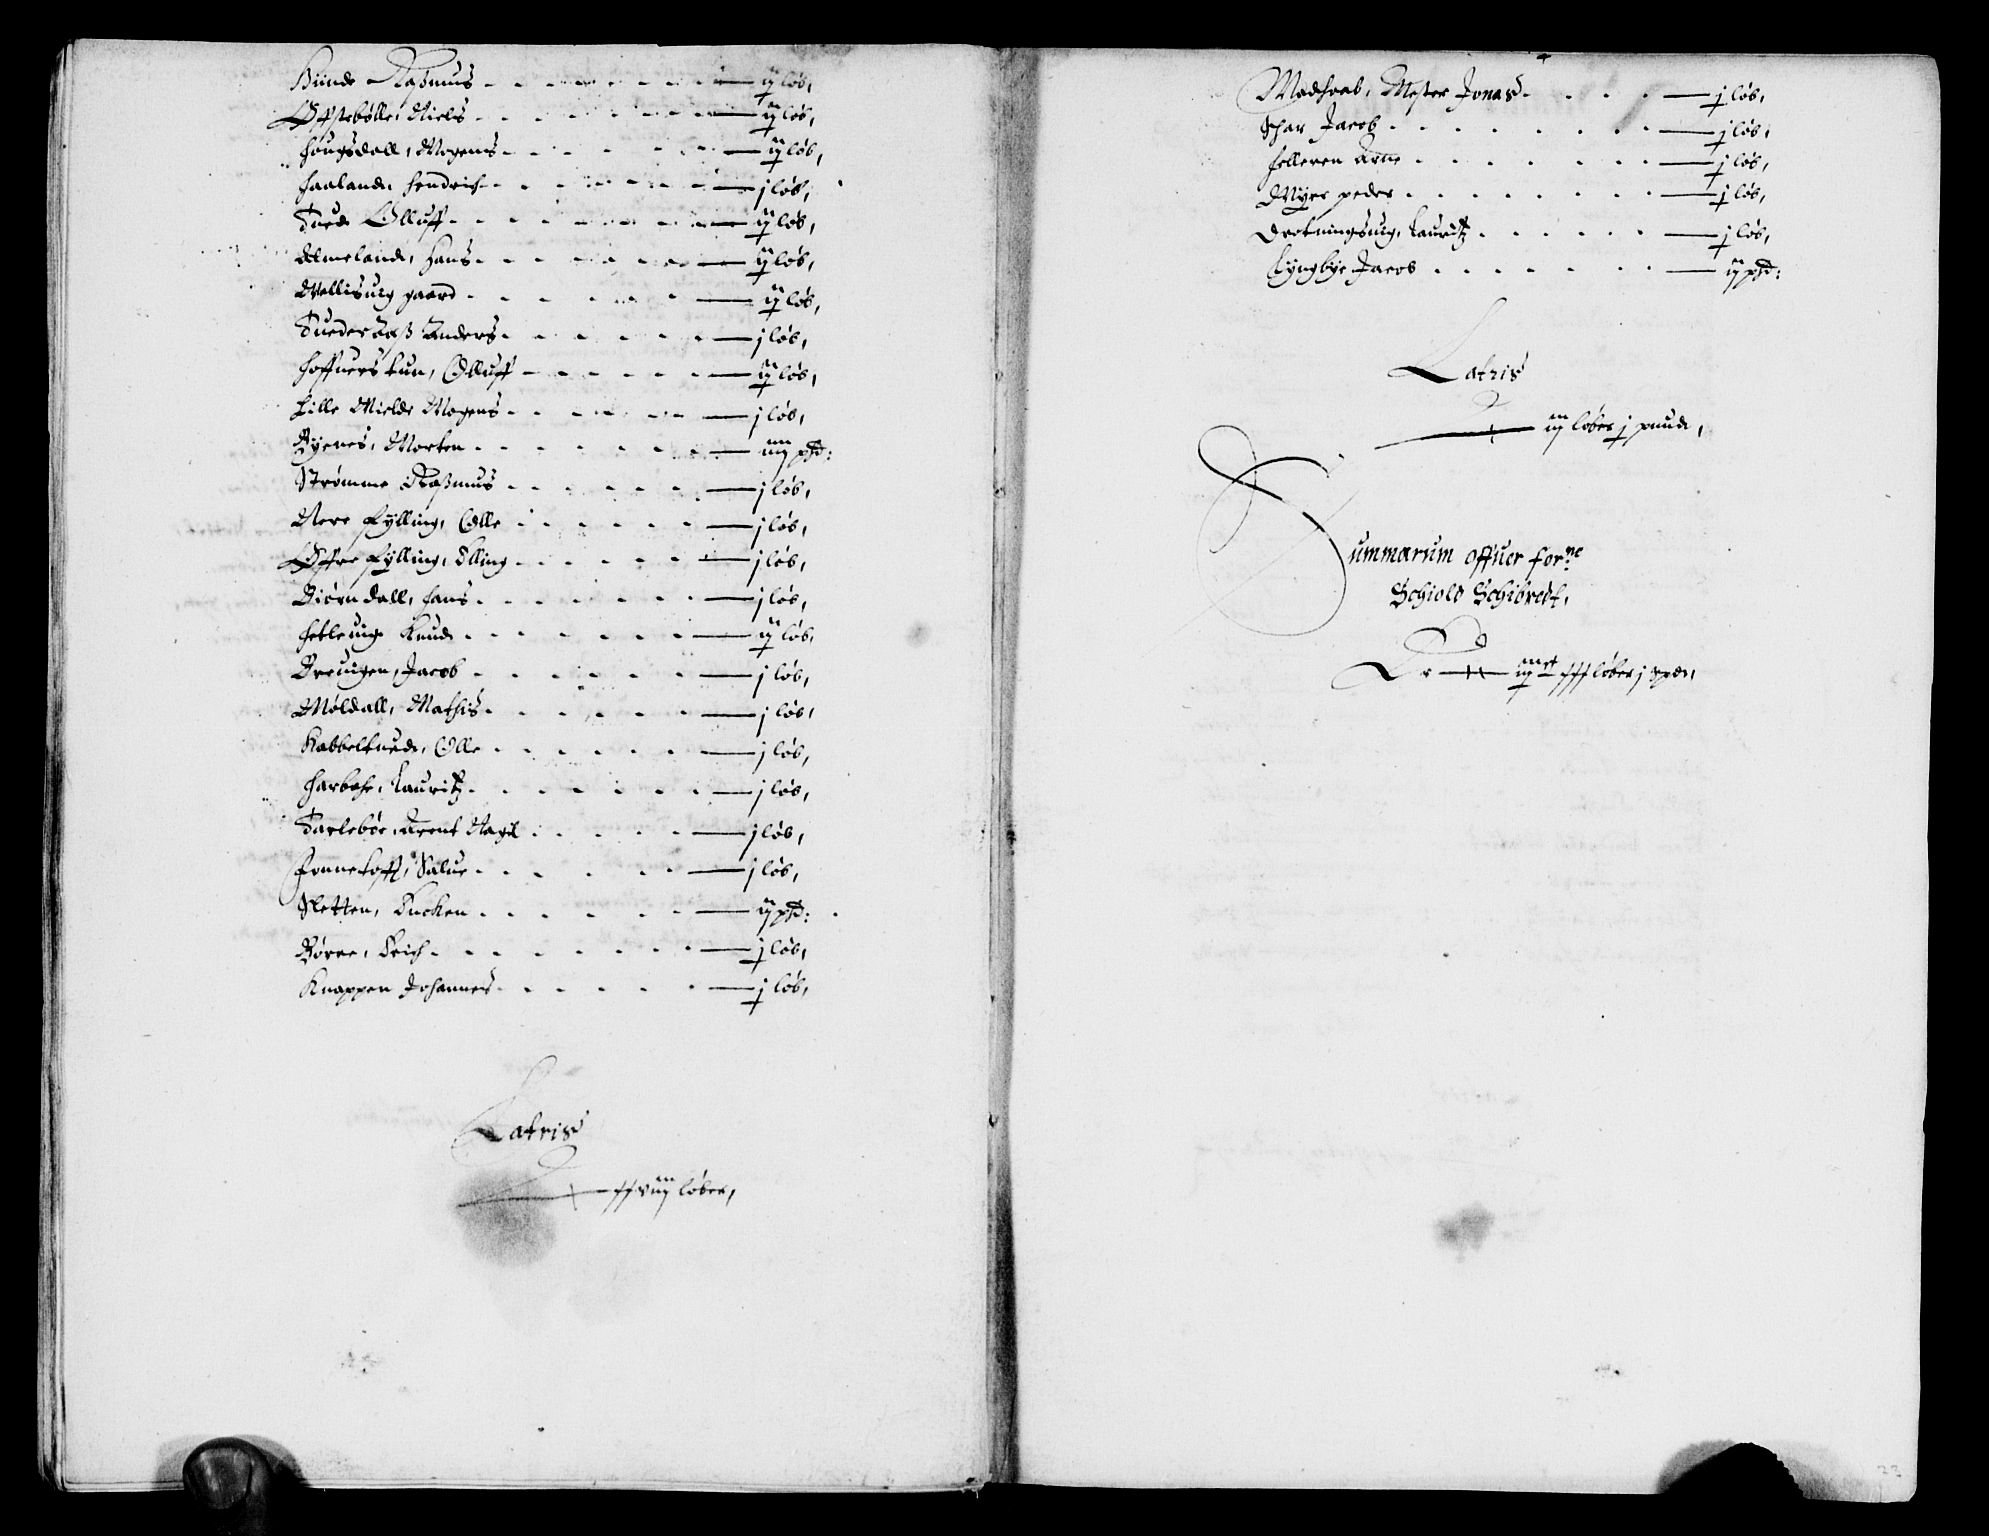 Hünde Raßmus - - - - - - - ij løb,
Øffstebølle, Niels - - - - - - - ij løb,
Hougsdall, Mogens - - - - - - ij løb,
Haaland, Hendrich - - - - - - j løb,
Tued Olluff - - - - - - - ij løb,
Almeland, Hans - - - - - - ij løb,
Mellisuig gaard - - - - - - ij løb,
Tuederaaß Anders - - - - - - j løb,
Hoffuerstun, Olluff - - - - - - ij løb,
Lille Mielde Mogens - - - - - - j løb,
Byenes, Morten - - - - - - iiij pd:
Strømme Raßmus - - - - - - j løb,
Nere Fylling, Olle - - - - - - j løb,
Øffre Fylling, Elling - - - - - - j løb,
Biørndall, Hans - - - - - - j løb,
Hetleuig Knud - - - - - - ij løb,
Breuigen, Jacob - - - - - - j løb,
Møldall, Mathis - - - - - - j løb,
Kabbeltued, Olle - - - - - - j løb,
Harboe, Lauritz - - - - - - j løb,
Tarlebøe, Arent Nagel - - - - - j løb,
Jonnetofft, Salue - - - - - - j løb,
Sletten, Encken - - - - - - ij pd:
Børre, Erich - - - - - - - j løb,
Knappen Johannes - - - - - - j løb,
Latris
xxviij løber,
Madhoab, Mester Jonas - - - - j løb,
Schar Jacob - - - - - - - j løb,
Helleren Arne - - - - - - j løb,
Myer peder - - - - - - - j løb,
Drotningsuig, Lauritz - - - - - j løb,
Lyngbye Jacob - - - - - - ij pd:
Latris
iij løber j pund,
Summarum offuer for:ne
Schiold Schibredt,
Er iij ct xxx løber j pd,